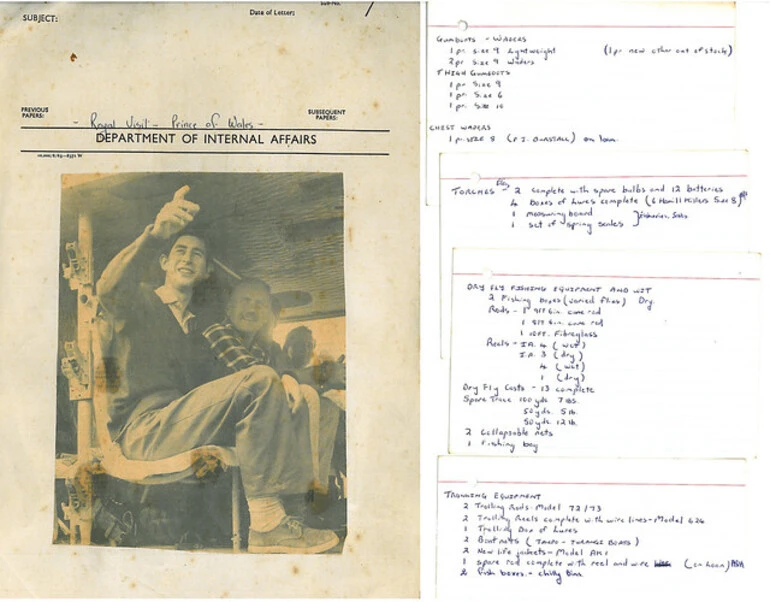 Sub-No.
1
SUBJECT:
Date of Letter:
PREVIOUS
PAPERS:
SUBSEQUENT
PAPERS:
- Royal Visit - Prince of Wales -
DEPARTMENT OF INTERNAL AFFAIRS
GUMBOOTS - WADERS
1 pr. Size 9 Lightweight (1 pr. new other out of stock)
2 pr Size 9 Waders
THIGH GUMBOOTS
1 pr. Size 9
1 pr. Size 6
1 pr. Size 10
CHEST WADERS
1 pr. SIZE 8 (P.J. BURSTALL) on loan.
TORCHES - 2 complete with spare bulbs and 12 batteries
4 boxes of Lures complete (6 Hamill Killers Size 8)
1 measuring board
1 set of spring scales
DRY FLY FISHING EQUIPMENT AND WET
2 Fishing boxes (varied flies) Dry.
Rods - 1 9ft 6in. cane rod
1 8ft 6in. cane rod
1 10ft. Fibreglass
Reels - I.A. 4 (wet)
I.A. 3 (dry)
4 (wet)
1 (dry)
Dry Fly Casts - 13 complete
Spare Trace 100 yds 7 lbs.
50 yds. 5 lb.
50 yds. 12 lb.
2 Collapsable nets
1 fishing bag
TROLLING EQUIPMENT
2 Trolling Rods - Model 72/73
2 Trolling Reels complete with wire lines - Model 626
1 Trolling Box of Lures
2 Boat nets (TAUPO - TURANGI BOATS)
2 New life jackets - Model AK1
1 spare rod complete with reel and wire (on loan)
2 Fish boxes - chilly bins